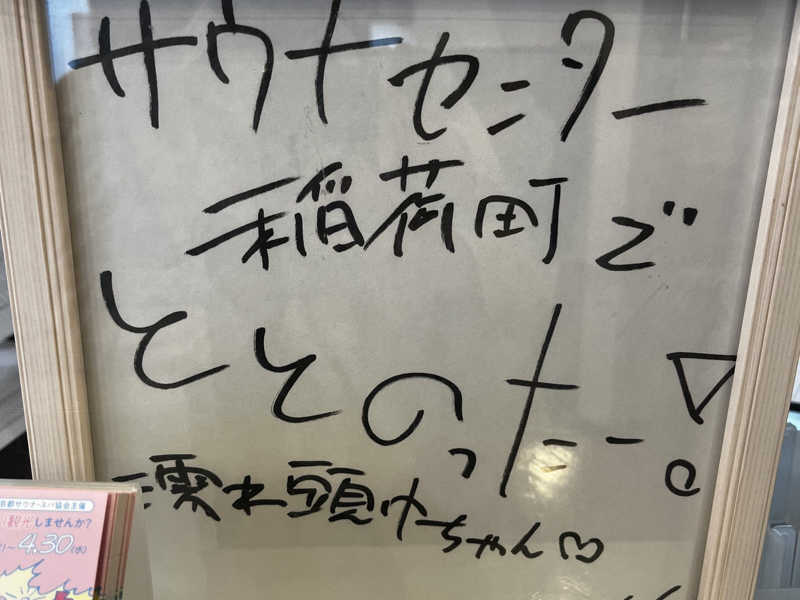 サウナセンター
稲荷町で
ととのったー!
濡れ頭ゆーちゃん♡
京都サウナ・スパ協会主催
観光しませんか?
〜4.30(水)